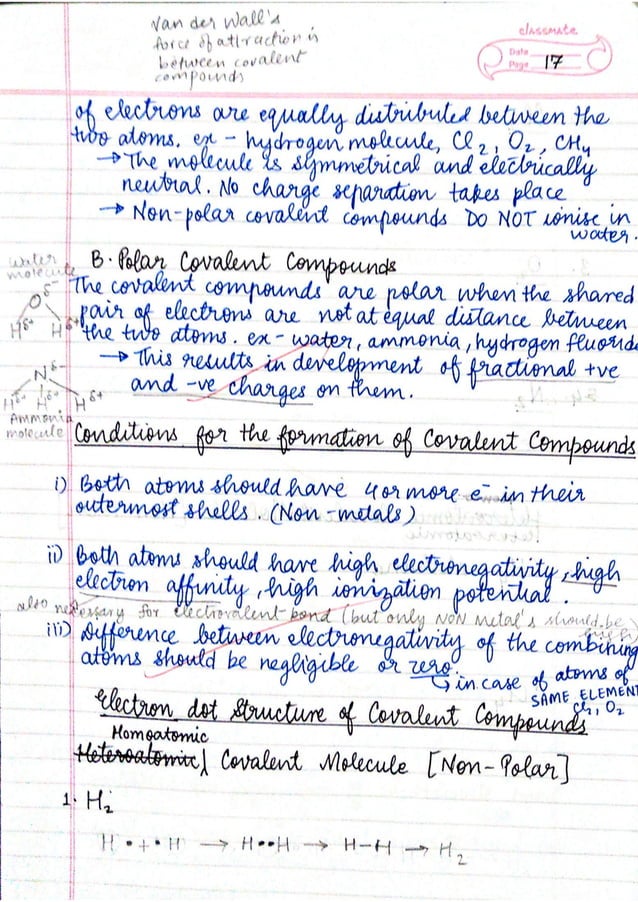 Van der Wall's
force of attraction is
between covalent
compounds
classmate
Date
Page 17
of electrons are equally distributed between the
two atoms. ex - hydrogen molecule, Cl2, O2, CH4
→ The molecule is symmetrical and electrically
neutral. No charge separation takes place
→ Non-polar covalent compounds DO NOT ionise in
water.
B. Polar Covalent Compounds
water
molecule
O δ-
H δ+ H δ+
The covalent compounds are polar when the shared
pair of electrons are not at equal distance between
the two atoms. ex - water, ammonia, hydrogen fluoride
→ This results in development of fractional +ve
and -ve charges on them.
N δ-
H δ+ H δ+ H δ+
Ammonia
molecule
Conditions for the formation of Covalent Compounds
i) Both atoms should have 4 or more e- in their
outermost shells. (Non-metals)
ii) Both atoms should have high electronegativity, high
electron affinity, high ionization potential.
also necessary for electrovalent bond (but only NON Metal's should be high)
iii) Difference between electronegativity of the combining
atoms should be negligible or zero.
↳ in case of atoms of
SAME ELEMENT
Cl2, O2
Electron dot Structure of Covalent Compounds
Homoatomic
Heteroatomic Covalent Molecule [Non-Polar]
1. H2
H • + • H → H••H → H-H → H2